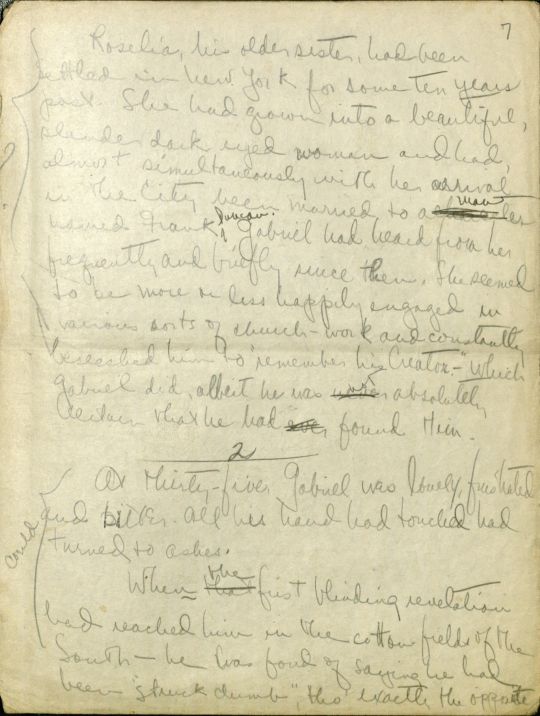 7
Roselia, his older sister, had been
settled in New York for some ten years
past. She had grown into a beautiful,
slander dark eyed woman and had,
almost simultaneously with her arrival
in the City been married to a man
named Frank Duncan. Gabriel had heard from her
frequently and briefly since then. She seemed
to be more or less happily engaged in
various sorts of church-work and constantly
beseeched him to "remember his Creator-" which
Gabriel did, albeit he was never absolutely
certain that he had ever found Him.
2
At thirty-five, Gabriel was lonely, frustrated
and bitter. All his hand had touched had
turned to ashes.
could
When the that first blinding revelation
had reached him in the cotton fields of the
South - he was fond of saying he had
been "struck dumb", tho' exactly the opposite